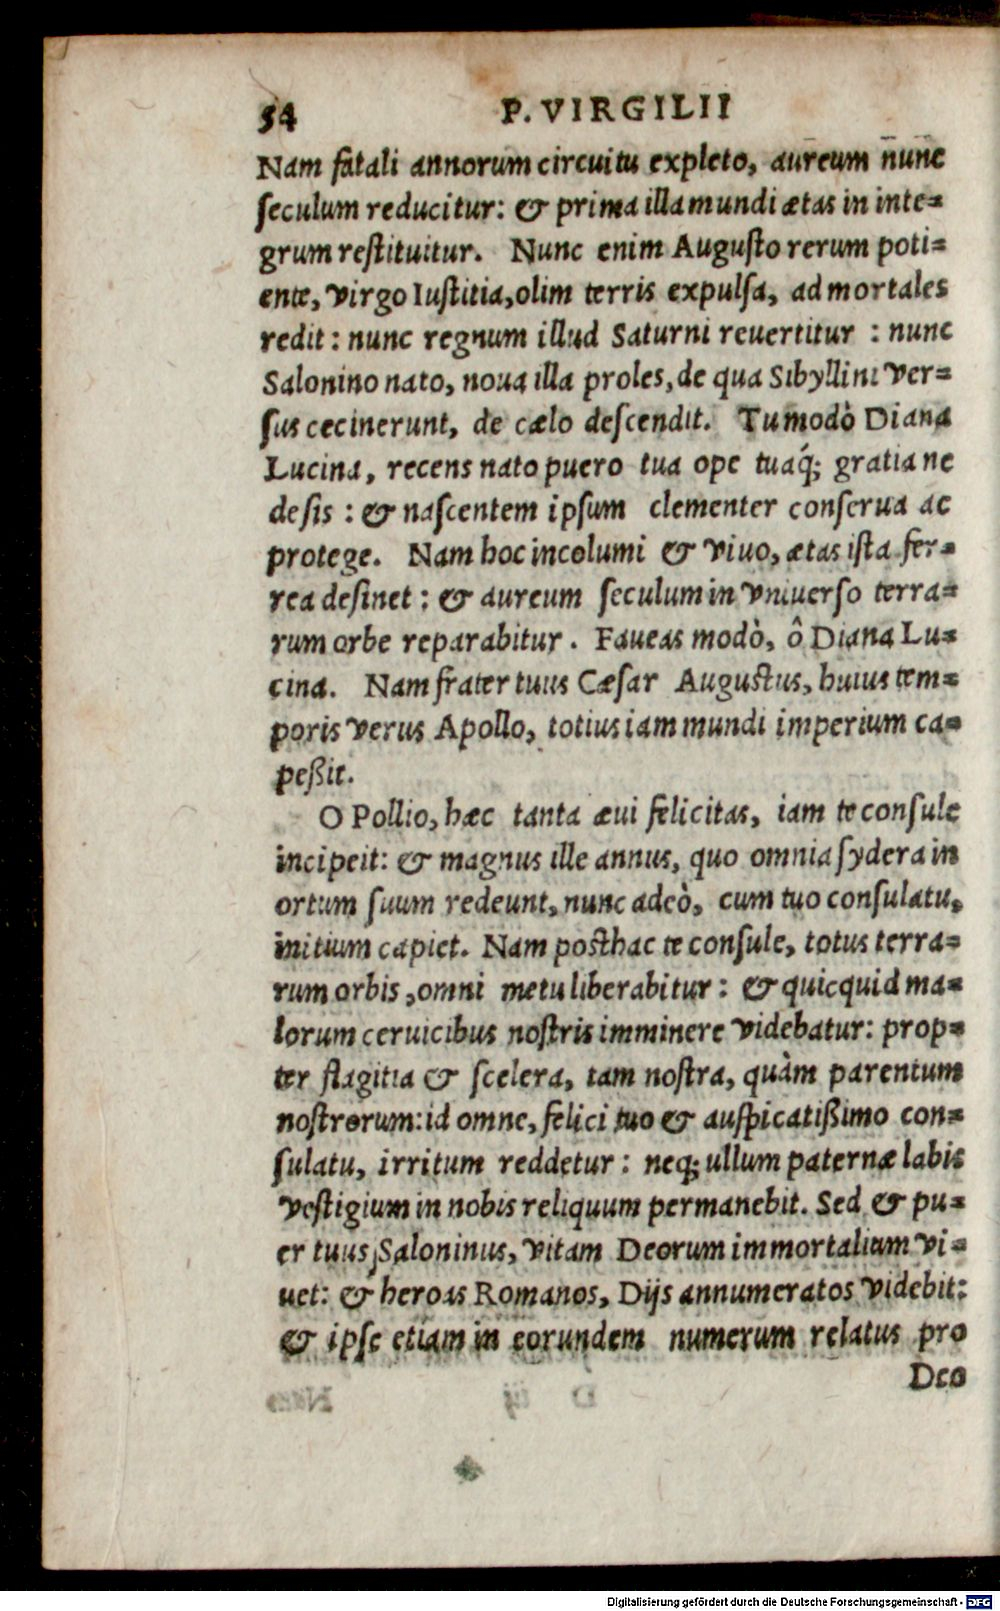 54 P. VIRGILII
Nam fatali annorum circuitu expleto, aureum nunc
ſeculum reducitur: & prima illa mundi ætas in inte-
grum reſtituitur. Nunc enim Auguſto rerum poti-
ente, virgo Iuſtitia, olim terris expulſa, ad mortales
redit: nunc regnum illud Saturni reuertitur : nunc
Salonino nato, noua illa proles, de qua Sibyllini ver-
ſus cecinerunt, de cælo deſcendit. Tu modò Diana
Lucina, recens nato puero tua ope tuaq́; gratia ne
deſis : & naſcentem ipſum clementer conſerua ac
protege. Nam hoc incolumi & viuo, ætas iſta fer-
rea deſinet : & aureum ſeculum in vniuerſo terra-
rum orbe reparabitur. Faueas modò, ô Diana Lu-
cina. Nam frater tuus Cæſar Auguſtus, huius tem-
poris verus Apollo, totius iam mundi imperium ca-
peßit.
O Pollio, hæc tanta æui felicitas, iam te conſule
incipeit: & magnus ille annus, quo omnia ſydera in
ortum ſuum redeunt, nunc adeò, cum tuo conſulatu,
initium capiet. Nam poſthac te conſule, totus terra-
rum orbis, omni metu liberabitur : & quicquid ma-
lorum ceruicibus noſtris imminere videbatur: prop-
ter flagitia & ſcelera, tam noſtra, quàm parentum
noſtrorum: id omne, felici tuo & auſpicatißimo con-
ſulatu, irritum reddetur : neq; ullum paternæ labis
veſtigium in nobis reliquum permanebit. Sed & pu-
er tuus Saloninus, vitam Deorum immortalium vi-
uet: & heroas Romanos, Dijs annumeratos videbit:
& ipſe etiam in eorundem numerum relatus pro
Deo
Digitalisierung gefördert durch die Deutsche Forschungsgemeinschaft - DFG